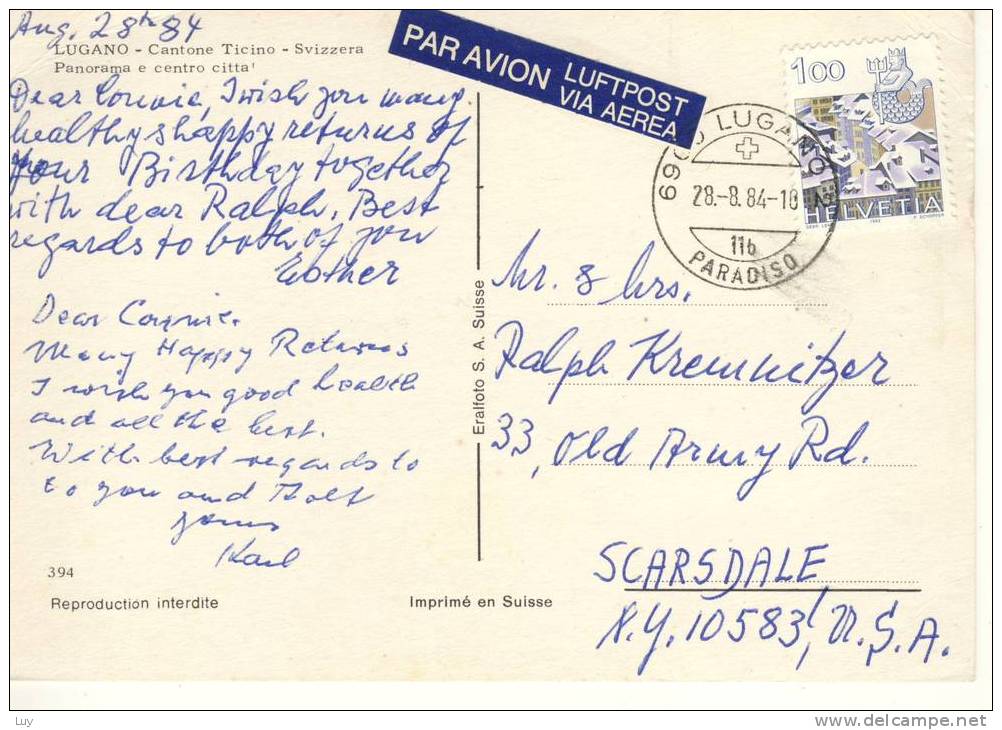 Aug. 28th 84
LUGANO - Cantone Ticino - Svizzera
Panorama e centro citta'
Dear Connie, I wish you many
healthy & happy returns of
your Birthday together
with dear Ralph, Best
regards to both of you
Esther
Dear Connie.
Many Happy Returns
I wish you good health
and all the best.
With best regards to
to you and Ralf
yours
Karl
394
Reproduction interdite
Imprimé en Suisse
Eralfoto S. A. Suisse
PAR AVION
LUFTPOST
VIA AEREA
6900 LUGANO
28.-8.84-18
11b
PARADISO
100
HELVETIA
Mr. & Mrs.
Ralph Kremnitzer
33, Old Army Rd.
SCARSDALE,
N.Y. 10583, U.S.A.
Luy
delcampe.net